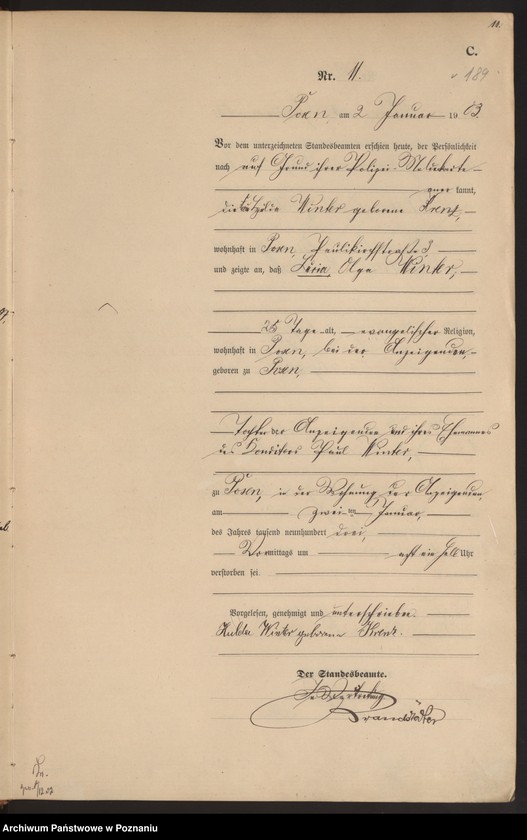 11.
C.
Nr. 11.
189
Posen, am 2 Januar 1903.
Vor dem unterzeichneten Standesbeamten erschien heute, der Persönlichkeit
nach auf Grund ihrer Polizei-Meldekarte
anerkannt,
die Winter geborene
wohnhaft in Posen, Paulikirchstraße 3
und zeigte an, daß Olga Winter,
Tage alt, evangelischer Religion,
wohnhaft in Posen, bei der Anzeigenden
geboren zu Posen,
Tochter der Anzeigenden und ihres Ehemannes
des Konditors Paul Winter,
zu Posen, in der Wohnung der Anzeigenden,
am zweiten Januar,
des Jahres tausend neunhundert drei
Vormittags um acht ein halb Uhr
verstorben sei.
Vorgelesen, genehmigt und unterschrieben.
Hulda Winter geborene Krenz.
Der Standesbeamte.
In Vertretung
Brandstädter
12.02
Archiwum Państwowe w Poznaniu